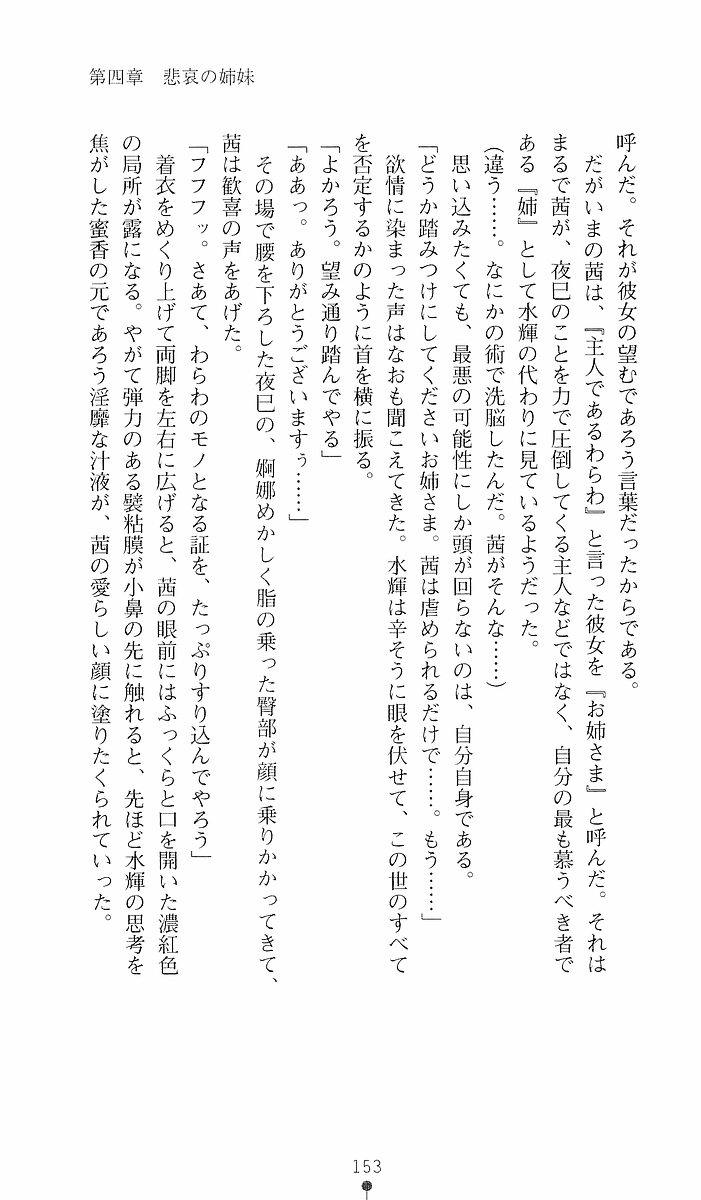 第四章　悲哀の姉妹
呼んだ。それが彼女の望むであろう言葉だったからである。
だがいまの茜は、『主人であるわらわ』と言った彼女を『お姉さま』と呼んだ。それは
まるで茜が、夜巳のことを力で圧倒してくる主人などではなく、自分の最も慕うべき者で
ある『姉』として水輝の代わりに見ているようだった。
（違う……。なにかの術で洗脳したんだ。茜がそんな……）
思い込みたくても、最悪の可能性にしか頭が回らないのは、自分自身である。
「どうか踏みつけにしてくださいお姉さま。茜は虐められるだけで……。もう……」
欲情に染まった声はなおも聞こえてきた。水輝は辛そうに眼を伏せて、この世のすべて
を否定するかのように首を横に振る。
「よかろう。望み通り踏んでやる」
「ああっ。ありがとうございますぅ……」
その場で腰を下ろした夜巳の、婀娜めかしく脂の乗った臀部が顔に乗りかかってきて、
茜は歓喜の声をあげた。
「フフフッ。さあて、わらわのモノとなる証を、たっぷりすり込んでやろう」
着衣をめくり上げて両脚を左右に広げると、茜の眼前にはふっくらと口を開いた濃紅色
の局所が露になる。やがて弾力のある襞粘膜が小鼻の先に触れると、先ほど水輝の思考を
焦がした蜜香の元であろう淫靡な汁液が、茜の愛らしい顔に塗りたくられていった。
153